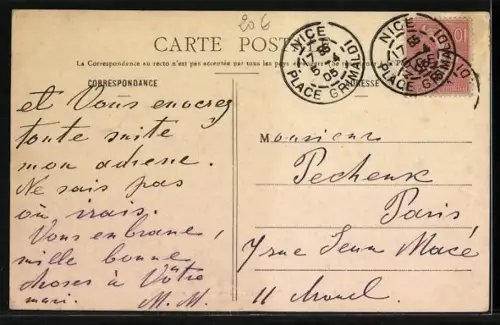 206
CARTE POSTALE
La Correspondance au recto n'est pas acceptée par tous les pays
CORRESPONDANCE
ADRESSE
NICE
PLACE GRIMALDI
17 05
NICE
PLACE GRIMALDI
17
10
et Vous enverrez
toute suite
mon adresse.
Ne sais pas
où irais.
Vous embrasse,
mille bonne
choses à Vôtre
mari. M. M.
Monsieur
Paris
7 rue Jean Macé
11